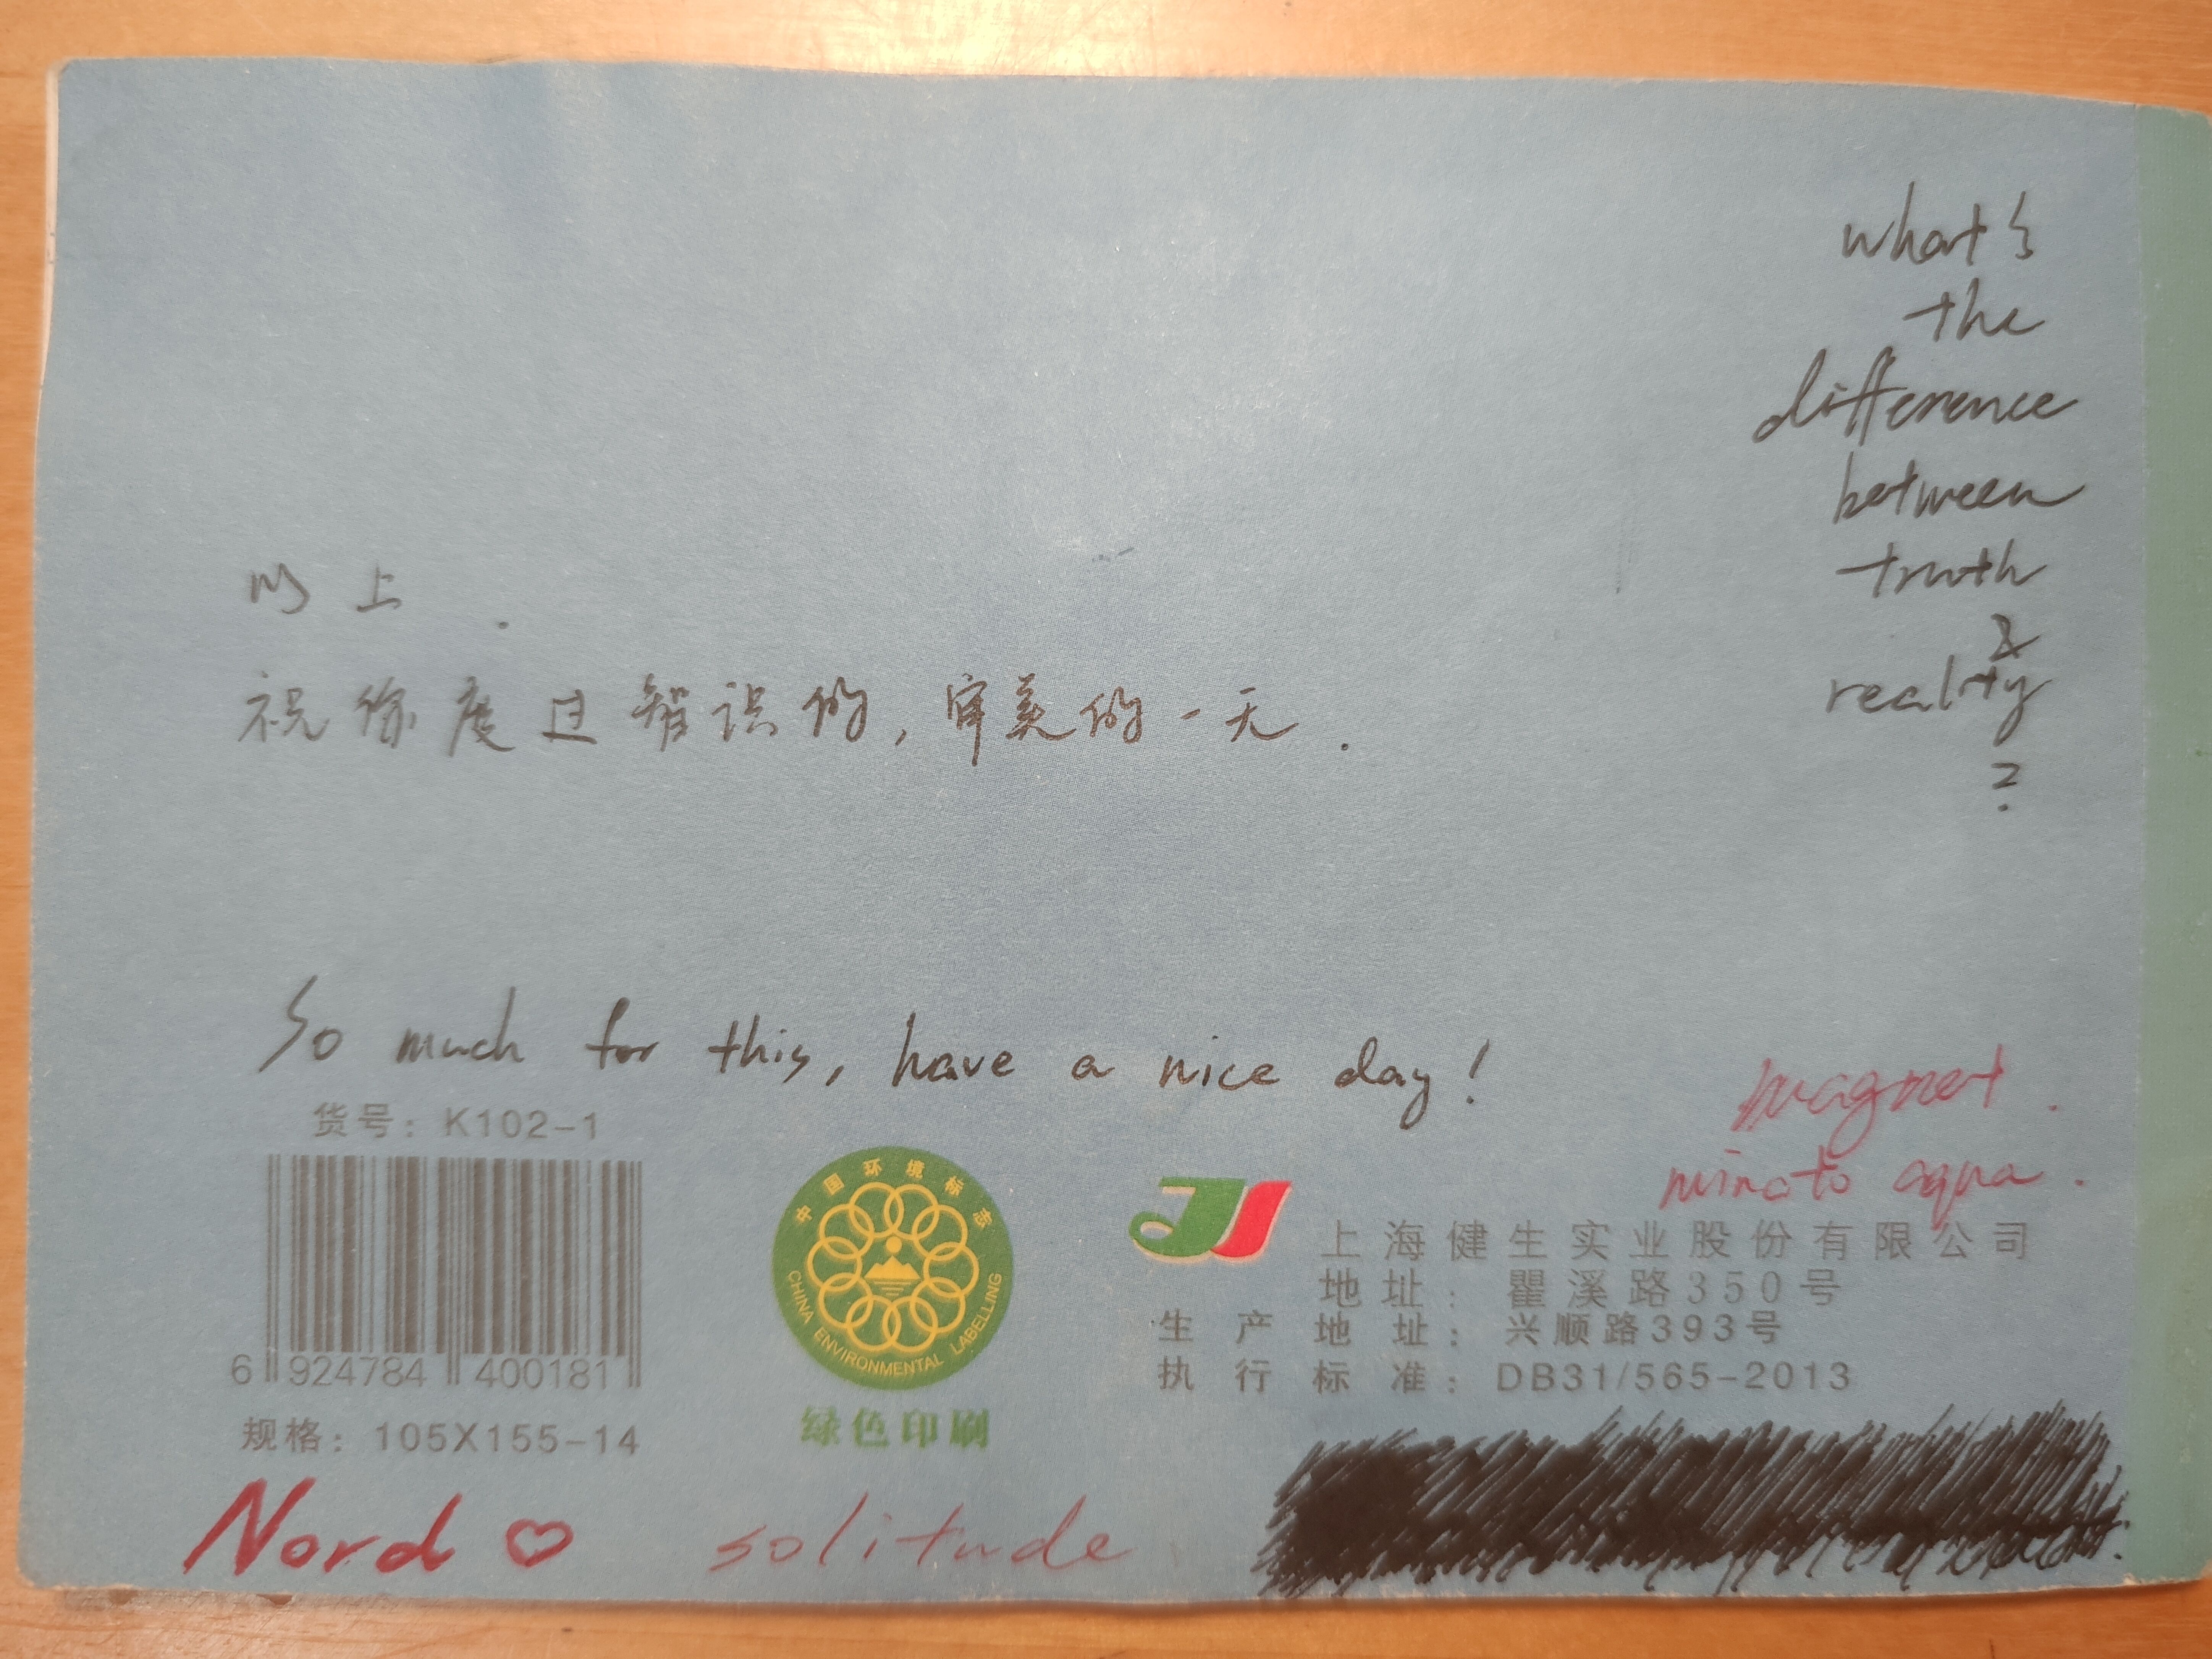 what's
the
difference
between
truth
&
reality
?
以上.
祝你度过智识的,审美的一天.
So much for this, have a nice day!
magnet.
minato aqua.
货号: K102-1
6 924784 400181
规格: 105X155-14
中国环境标志
CHINA ENVIRONMENTAL LABELLING
绿色印刷
上海健生实业股份有限公司
地址: 瞿溪路350号
生产地址: 兴顺路393号
执行标准: DB31/565-2013
Nord ♡
solitude